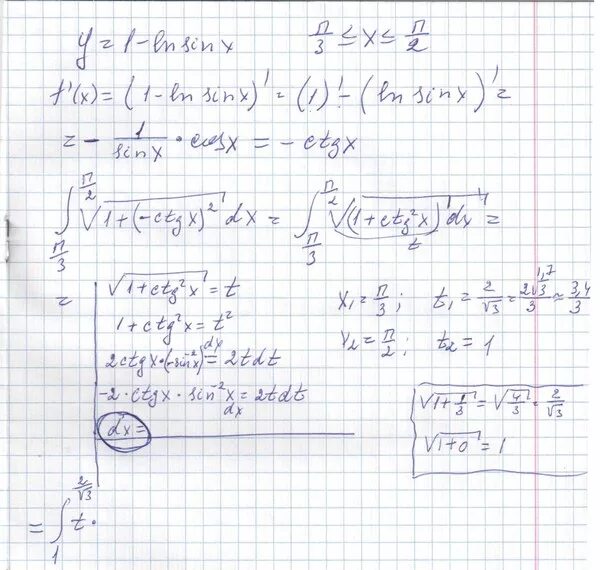 y = 1 - ln sin x π/3 ≤ x ≤ π/2
f'(x) = (1 - ln sin x)' = (1)' - (ln sin x)' =
= - 1/sin x · cos x = - ctg x
∫_{π/3}^{π/2} √(1 + (-ctg x)²) dx = ∫_{π/3}^{π/2} √(1 + ctg² x) dx =
t
= √(1 + ctg² x) = t
1 + ctg² x = t²
2 ctg x · (-sin⁻² x) dx = 2t dt
-2 · ctg x · sin⁻² x dx = 2t dt
dx =
x₁ = π/3 ; t₁ = 2/√3 = 2√3/3 ≈ 3,4/3
1,7
x₂ = π/2 ; t₂ = 1
√(1 + 1/3) = √(4/3) = 2/√3
√(1 + 0) = 1
= ∫_{1}^{2/√3} t ·